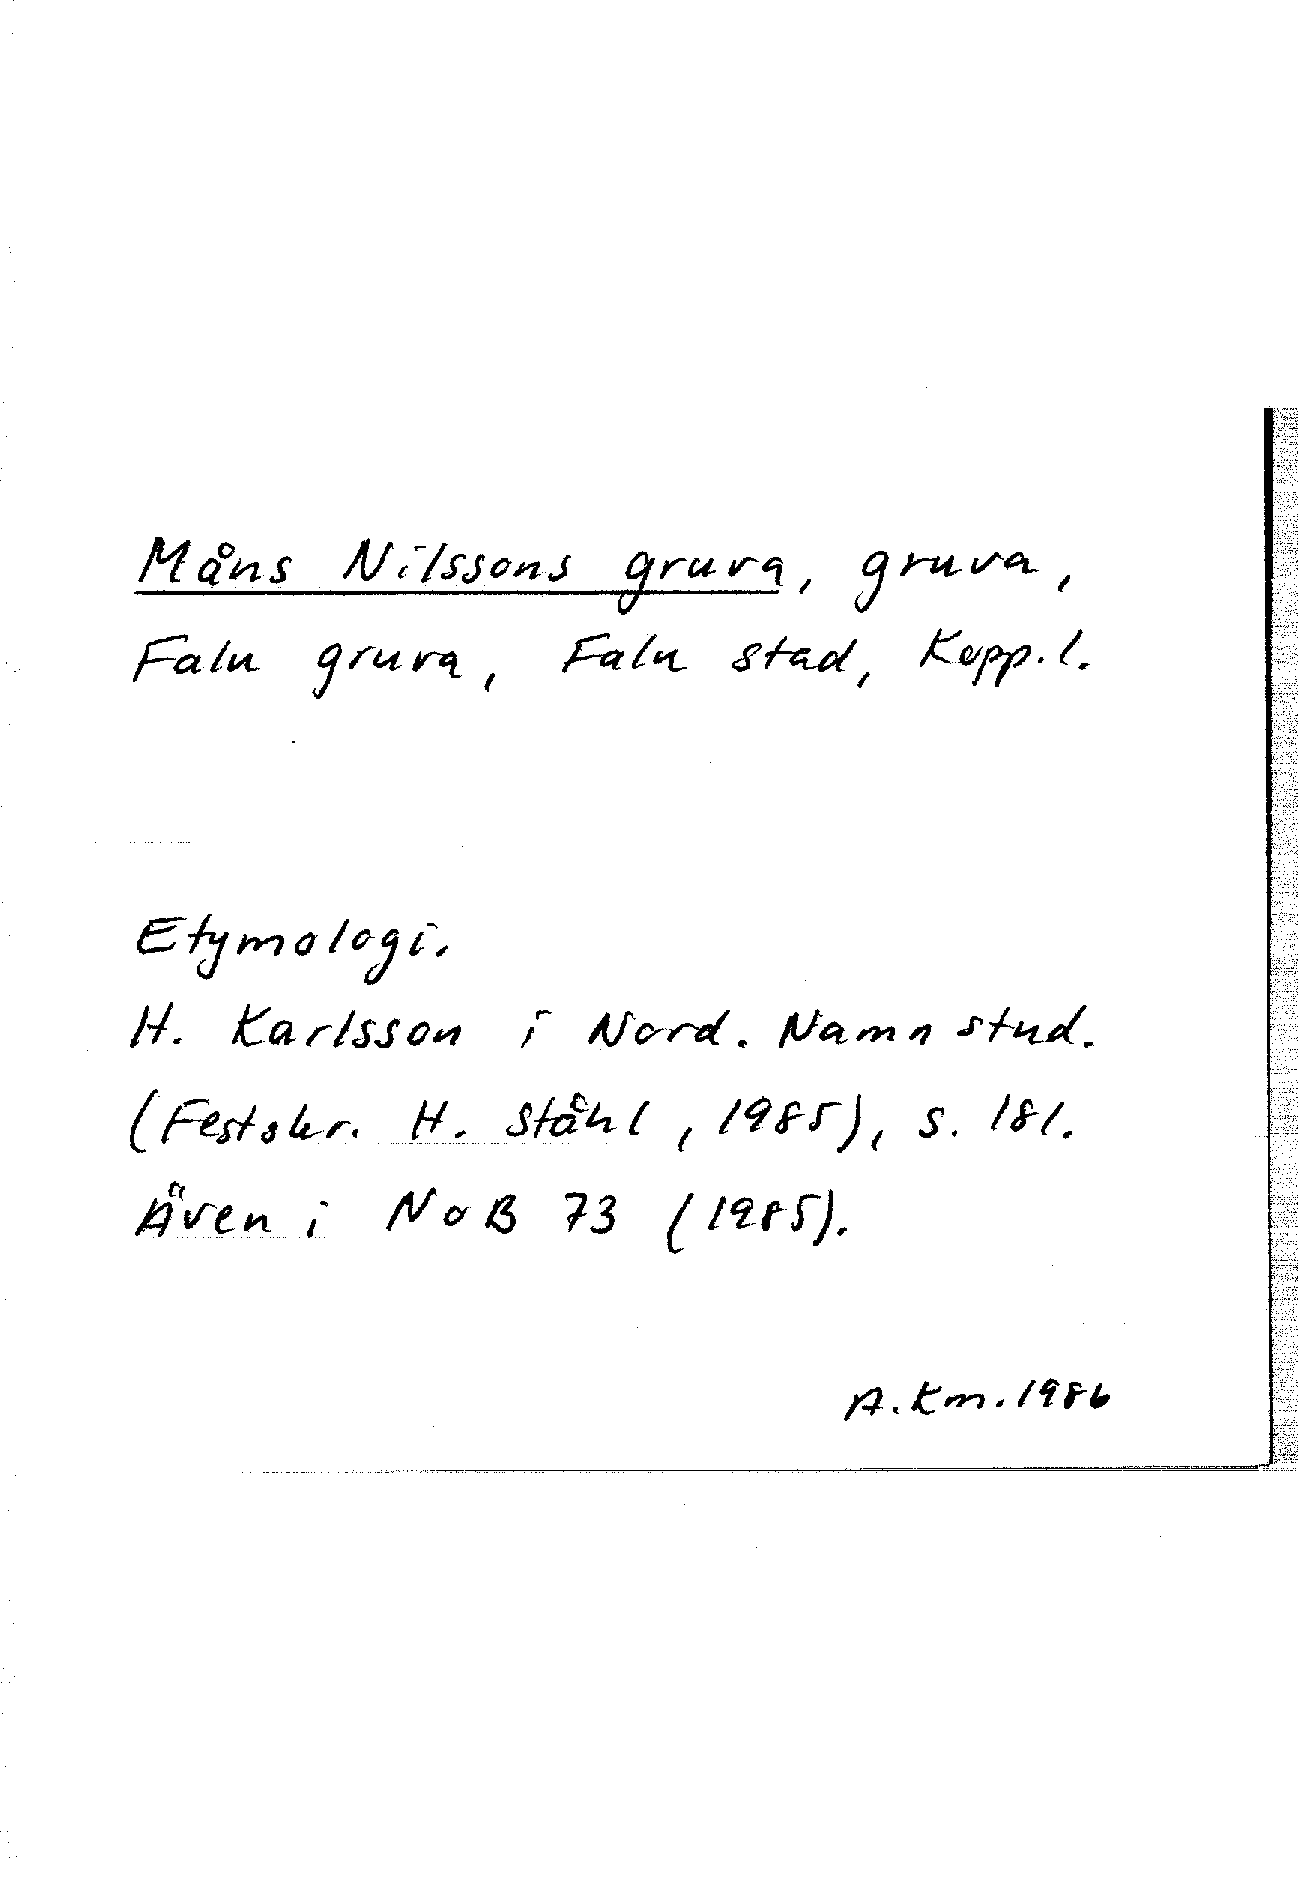 Måns Nilssons gruva, gruva,
Falu gruva, Falu stad, Kopp.l.
Etymologi.
H. Karlsson i Nord. Namnstud.
(Festskr. H. Ståhl, 1985), s. 181.
Även i NoB 73 (1985).
A.Km.1986